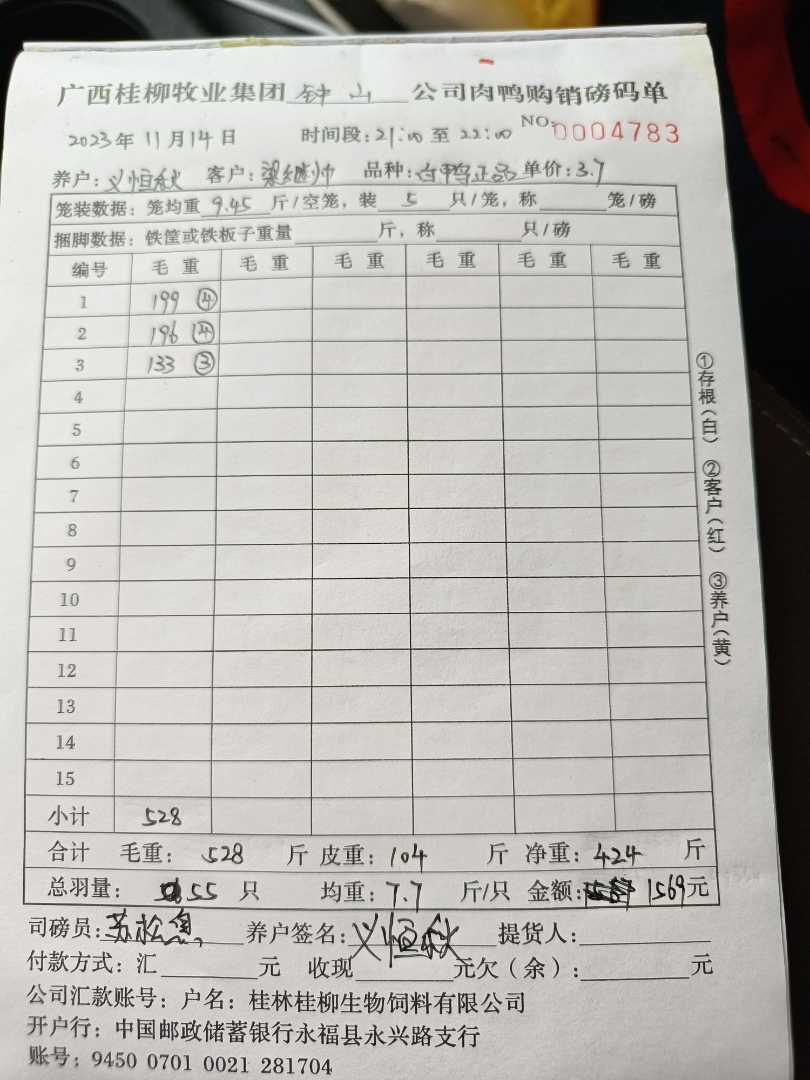 广西桂柳牧业集团 钟山 公司肉鸭购销磅码单
2023年11月14日 时间段:21:00至22:00 NO:0004783
养户:义恒秋 客户:梁继帅 品种:白鸭正品 单价:3.7
笼装数据:笼均重 9.45 斤/空笼,装 5 只/笼,称 笼/磅
捆脚数据:铁筐或铁板子重量 斤,称 只/磅
编号 毛重 毛重 毛重 毛重 毛重 毛重
1 199 ④
2 196 ④
3 133 ③
4
5
6
7
8
9
10
11
12
13
14
15
小计 528
合计 毛重:528 斤 皮重:104 斤 净重:424 斤
总羽量:55 只 均重:7.7 斤/只 金额:1569元
司磅员:苏松 养户签名:义恒秋 提货人:
付款方式:汇 元 收现 元欠(余): 元
公司汇款账号:户名:桂林桂柳生物饲料有限公司
开户行:中国邮政储蓄银行永福县永兴路支行
账号:9450 0701 0021 281704
①存根(白) ②客户(红) ③养户(黄)